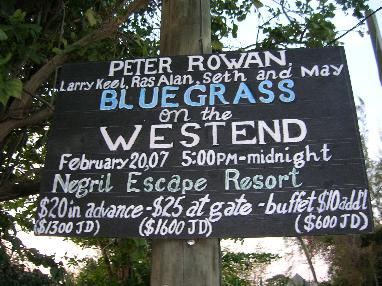 PETER ROWAN,
Larry Keel, Ras Alan, Seth and May
BLUEGRASS
on the
WESTEND
February 2007 5:00PM-midnight
Negril Escape Resort
$20 in advance-$25 at gate-buffet $10 add'l
($1300 JD) ($1600 JD) ($600 JD)